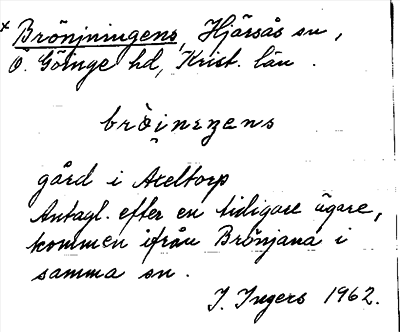 × Brönjningens, Hjärsås sn,
Ö. Göinge hd, Krist. län.
brö̀i̯nɪŋens
gård i Axeltorp
Antagl. efter en tidigare ägare,
kommen ifrån Brönjana i
samma sn.
I. Ingers 1962.